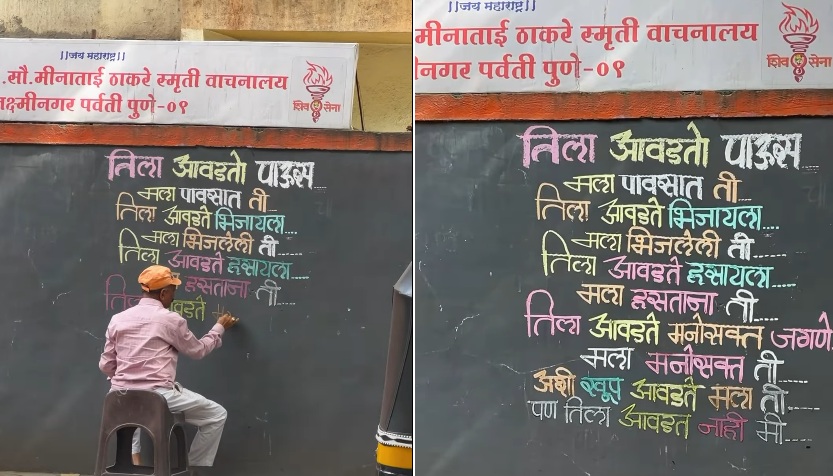 ||जय महाराष्ट्र||
.सौ.मीनाताई ठाकरे स्मृती वाचनालय
लक्ष्मीनगर पर्वती पुणे-०९
शिव सेना
तिला आवडतो पाऊस...
मला पावसात ती...
तिला आवडते भिजायला....
मला भिजलेली ती....
तिला आवडते हसायला....
हसताना ती....
तिला आवडते
||जय महाराष्ट्र||
मीनाताई ठाकरे स्मृती वाचनालय
नगर पर्वती पुणे-०९
शिव सेना
तिला आवडतो पाऊस...
मला पावसात ती...
तिला आवडते भिजायला....
मला भिजलेली ती....
तिला आवडते हसायला....
मला हसताना ती....
तिला आवडते मनोसक्त जगणे
मला मनोसक्त ती....
अशी खूप आवडते मला ती....
पण तिला आवडत नाही मी....